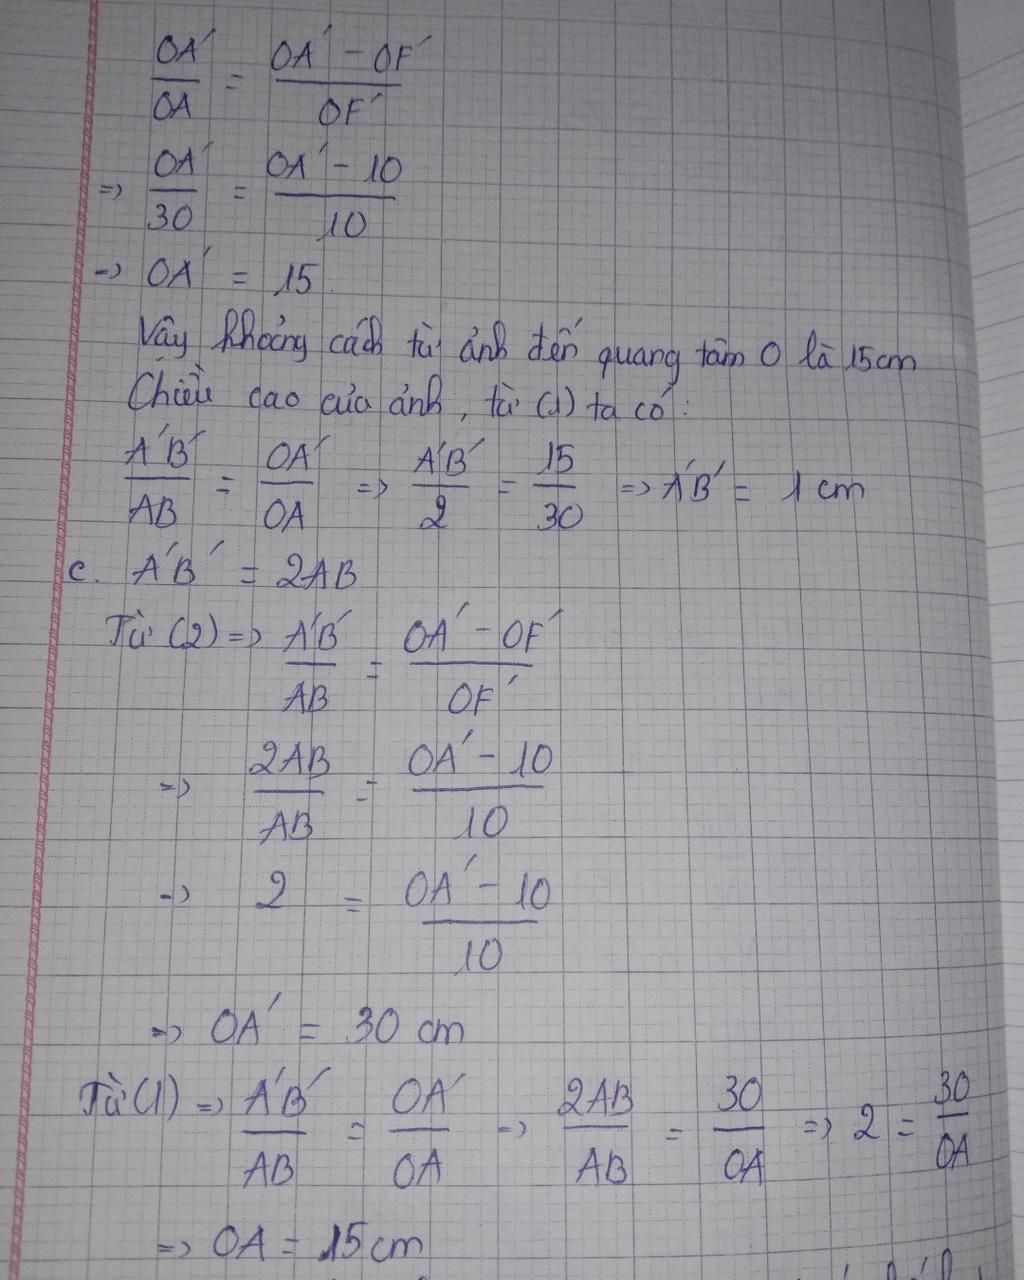 OA'/OA = (OA' - OF')/OF'
=> OA'/30 = (OA' - 10)/10
=> OA' = 15
Vậy khoảng cách từ ảnh đến quang tâm O là 15cm
Chiều cao của ảnh, từ (1) ta có:
A'B'/AB = OA'/OA => A'B'/2 = 15/30 => A'B' = 1 cm
c. A'B' = 2AB
Từ (2) => A'B'/AB = (OA' - OF')/OF'
=> 2AB/AB = (OA' - 10)/10
=> 2 = (OA' - 10)/10
=> OA' = 30 cm
Từ (1) => A'B'/AB = OA'/OA => 2AB/AB = 30/OA => 2 = 30/OA
=> OA = 15cm